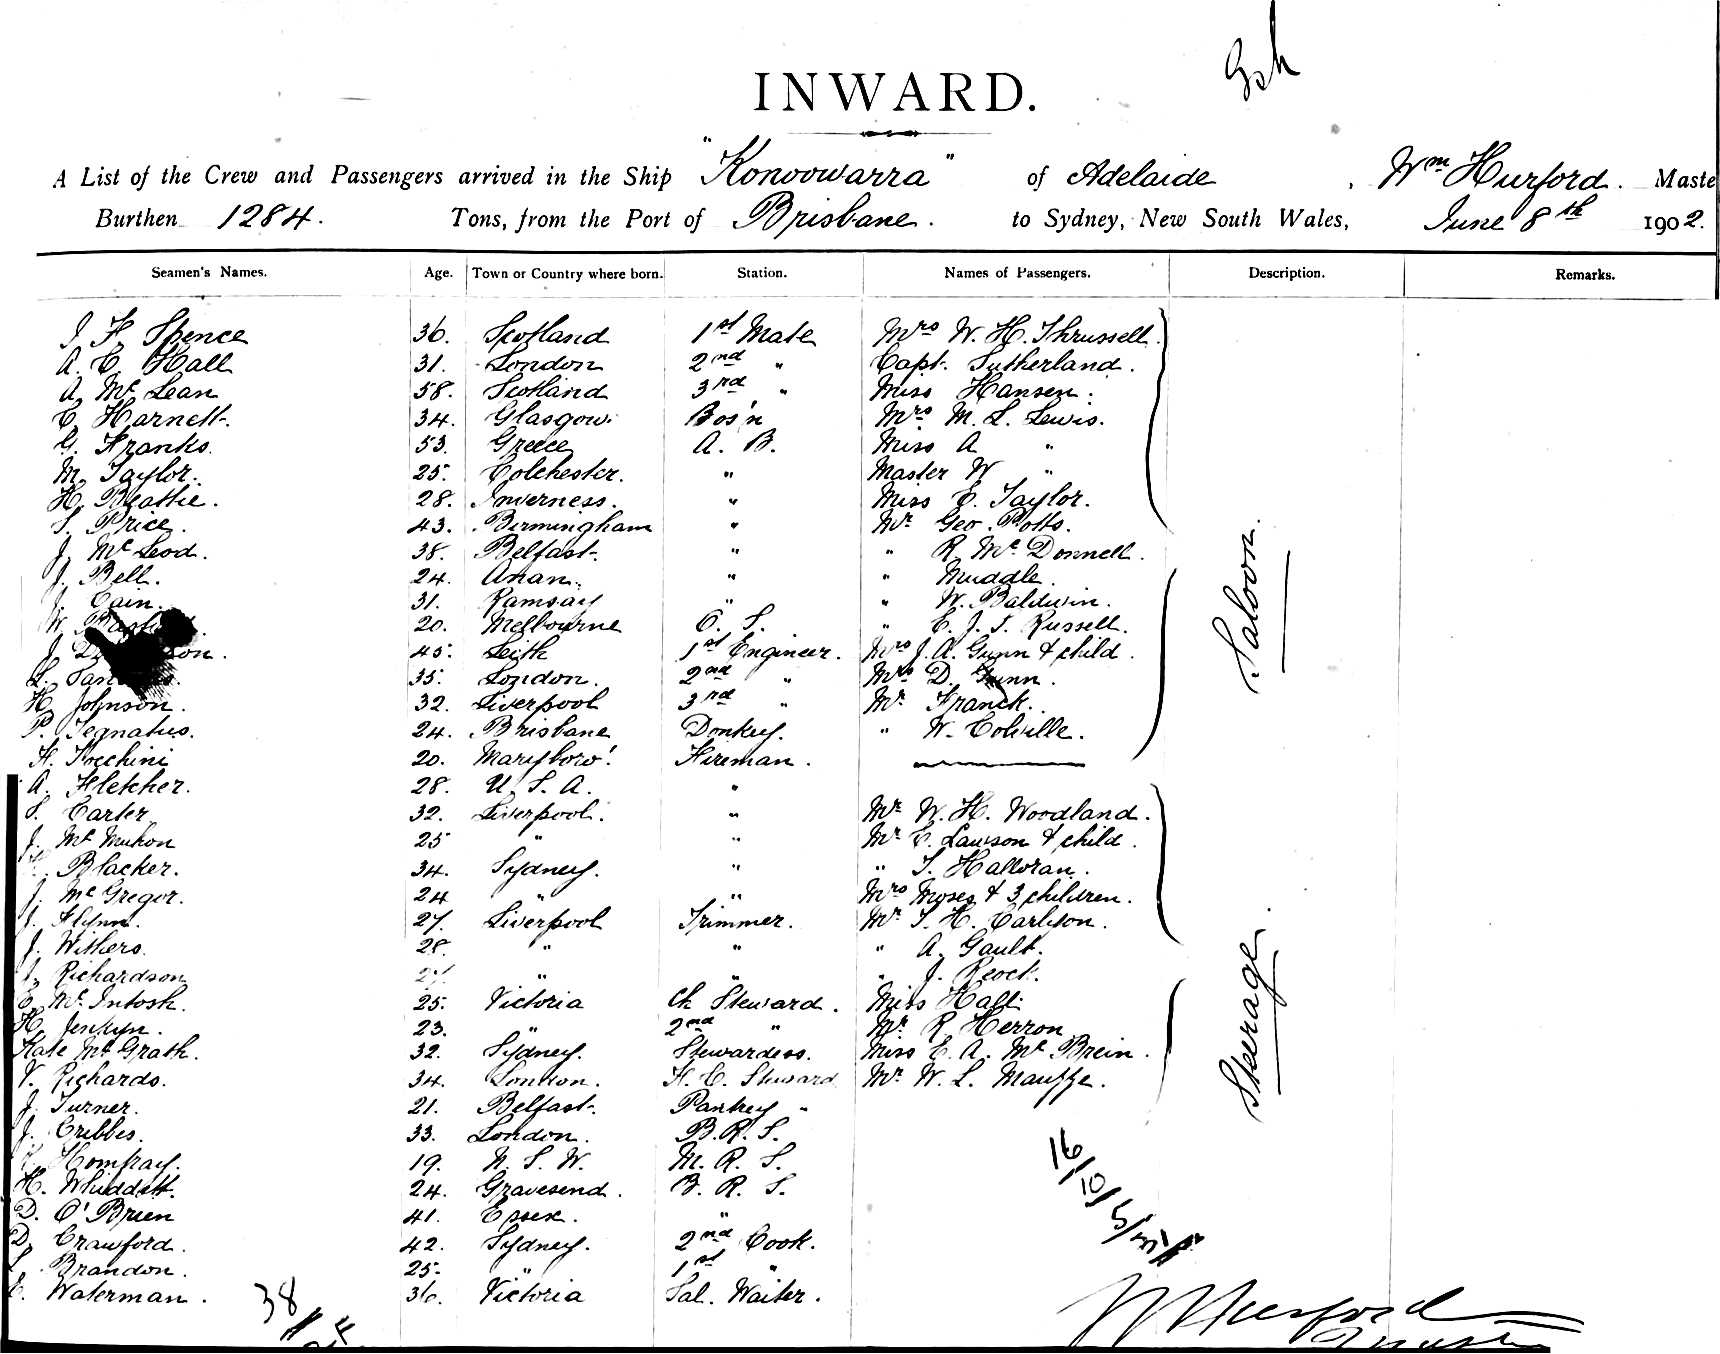 INWARD.
A List of the Crew and Passengers arrived in the Ship "Konoowarra" of Adelaide, Wm Hurford. Maste
Burthen 1284. Tons, from the Port of Brisbane. to Sydney, New South Wales, June 8th 1902.
Seamen's Names. Age. Town or Country where born. Station. Names of Passengers. Description. Remarks.
J. F. Spence 36. Scotland 1st Mate Mrs W. H. Thrussell.
A. E. Hall 31. London 2nd " Capt. Sutherland.
A. Mc Lean 58. Scotland 3rd " Miss Hansen.
C. Harnett. 34. Glasgow. Bos'n Mrs M. L. Lewis.
G. Franks. 53. Greece A. B. Miss A "
M. Taylor. 25. Colchester. " Master W "
H. Beattie. 28. Inverness. " Miss E. Taylor.
S. Price. 43. Birmingham " Mr Geo. Potts.
J. Mc Leod. 38. Belfast. " " R. Mc Donnell.
J. Bell. 24. Anan. " " Muddle.
J. Cain. 31. Ramsay " " W. Baldwin.
W. 20. Melbourne O. S. " E. J. T. Russell.
J. 45. Leith 1st Engineer. Mrs J. A. Gunn & child.
35. London. 2nd " Mrs D. Gunn.
H. Johnson. 32. Liverpool 3rd " Mr Franck.
P. Tegnatus. 24. Brisbane Donkey. " W. Colville.
H. 20. Maryboro'. Fireman.
A. Fletcher. 28. U. S. A. "
S. Carter 32. Liverpool. " Mr W. H. Woodland.
J. Mc Mukon 25 " " Mr E. Lawson & child.
Blacker. 34. Sydney. " " T. Halloran.
J. Mc Gregor. 24 " " Mrs Moses & 3 children.
J. Flynn. 27. Liverpool Trimmer. Mr T. H. Carlson.
J. Withers. 28. " " " A. Gault.
J. Richardson " " " J. Reock.
E. Mc Intosh. 25. Victoria Ch Steward. Miss Hall
H. Jenkyn. 23. " 2nd " Mr R. Herron
Kate Mc Grath. 32. Sydney. Stewardess. Miss E. A. Mc Brein.
V. Richards. 34. London. F. C. Steward Mr W. L. Mauffe.
J. Turner. 21. Belfast. Pantry "
J. Cribbes. 33. London. B. R. S.
Homfray. 19. N. S. W. M. R. S.
H. Whiddett. 24. Gravesend. B. R. S.
D. O'Brien 41. Essex. "
D. Crawford. 42. Sydney. 2nd Cook.
Brandon. 25. " 1st "
E. Waterman. 36. Victoria Sal. Waiter.
Saloon.
Steerage.
16/10/5/
38
W Hurford